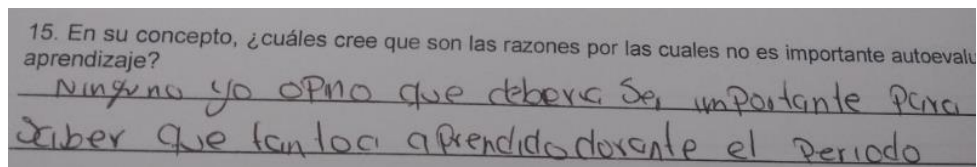 15. En su concepto, ¿cuáles cree que son las razones por las cuales no es importante autoevalu
aprendizaje?
Ninguno yo opino que deberia Ser importante para
saber que tan toca aprendido dorante el Periodo